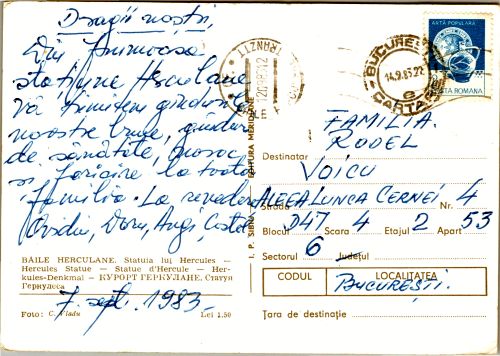 Dragii noștri,
Din frumoasa
stațiune Herculane
vă trimitem gândurile
noastre bune, gânduri
de sănătate, noroc
și fericire la toată
familia. La revedere
Ovidiu, Doru, Angi, Costa
BĂILE HERCULANE. Statuia lui Hercules —
Hercules Statue — Statue d'Hercule — Her-
kules-Denkmal — КУРОРТ ГЕРКУЛАНЕ. Статуя
Геркулеса
7. sept. 1983
Foto: C. Vladu Lei 1.50
TRANZIT
BUCUREȘTI
14.9.83.22
CARTA
ARTĂ POPULARĂ
POȘTA ROMÂNĂ
FAMILIA
Destinatar RODEL
VOICU
Strada ALEEA LUNCA CERNEI Nr. 4
Blocul D47 Scara 4 Etajul 2 Apart. 53
Sectorul 6 Județul
CODUL LOCALITATEA
BUCUREȘTI.
Țara de destinație